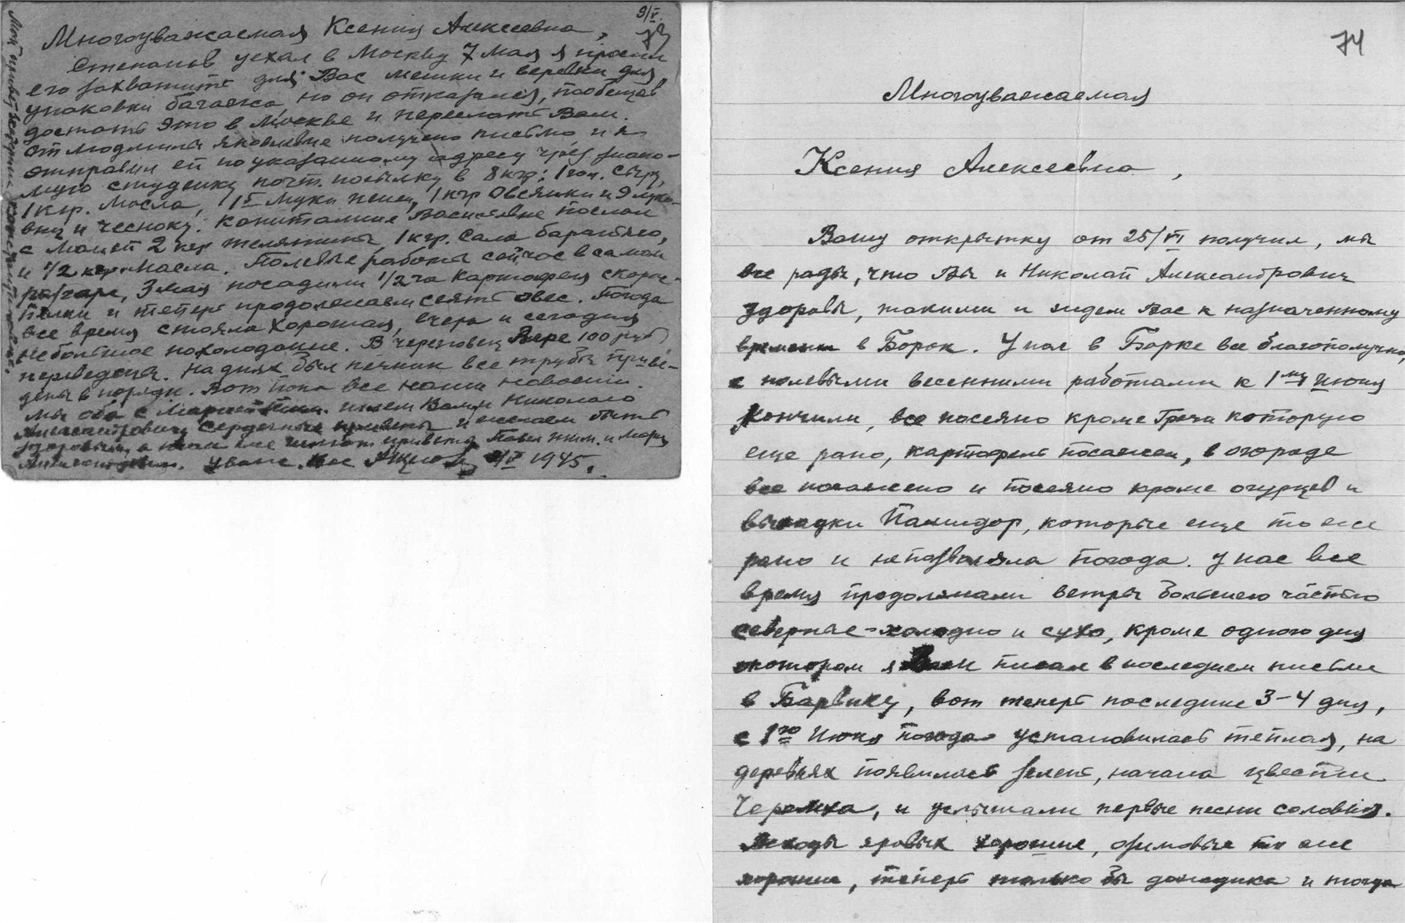 9/V.
73
Многоуважаемая Ксения Алексеевна,
Степанов уехал в Москву 7 мая я просил
его захватить для Вас мешки и веревки для
упаковки багажа, но он отказался, пообещав
достать это в Москве и переслать Вам.
От Людмилы Яковлевне получено письмо и я
отправил ей по указанному адресу через знако-
мую студентку почт. посылку в 8 кгр: 1 гол. сыру,
1 кгр. масла, муки пшен, 1 кгр Овсянки и 9 луко-
виц и чесноку. Капиталине Васильевне послал
с 2 кгр телятины, 1 кгр. сала бараньего,
и 1/2 кгр масла. Полевые работы сейчас в самом
разгаре, 3 мая посадили 1/2 га картофеля скоро-
спелки и теперь продолжаем сеять овес. Погода
все время стояла хорошая, вчера и сегодня
небольшое похолодание. В Череповец Вере 100 руб
переведены. На днях был печник все трубы приве-
дены в порядок. Вот пока все наши новости.
Мы оба с шлем Вам и Николаю
Александровичу сердечные приветы и желаем быть
здоровыми, а также шлют приветы Павел и Мария
Уваж. Вас 9/V 1945.
74
Многоуважаемая
Ксения Алексеевна,
Вашу открытку от 25/VI получил, мы
все рады, что Вы и Николай Александрович
здоровы, такими и ждем Вас к назначенному
времени в Борок. У нас в Борке все благополучно,
с полевыми весенними работами к 1му Июня
кончили, все насеяно кроме Греча которую
еще рано, картофель посажен, в огороде
все посажено и посеяно кроме огурцов и
высадки Памидор, которые еще то же
рано и непозволяла погода. У нас все
время продолжали ветры большею частью
северные - холодно и сухо, кроме одного дня
котором я Вам писал в последнем письме
в Барвиху, вот теперь последние 3-4 дня,
с 1го Июня погода установилась теплая, на
деревьях появилась зелень, начала цвести
Черемха, и услышали первые песни соловья.
Всходы яровых хорошие, озимовые то же
хорошие, теперь только бы дождика и тогда